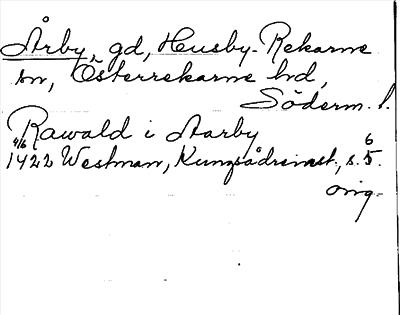 Årby, gd, Husby-Rekarne
sn, Österrekarne hd,
Söderm. l.
Rawald i Aarby
4/6 1422 Westman, Kungsådreinst., s. 5. 6
orig.